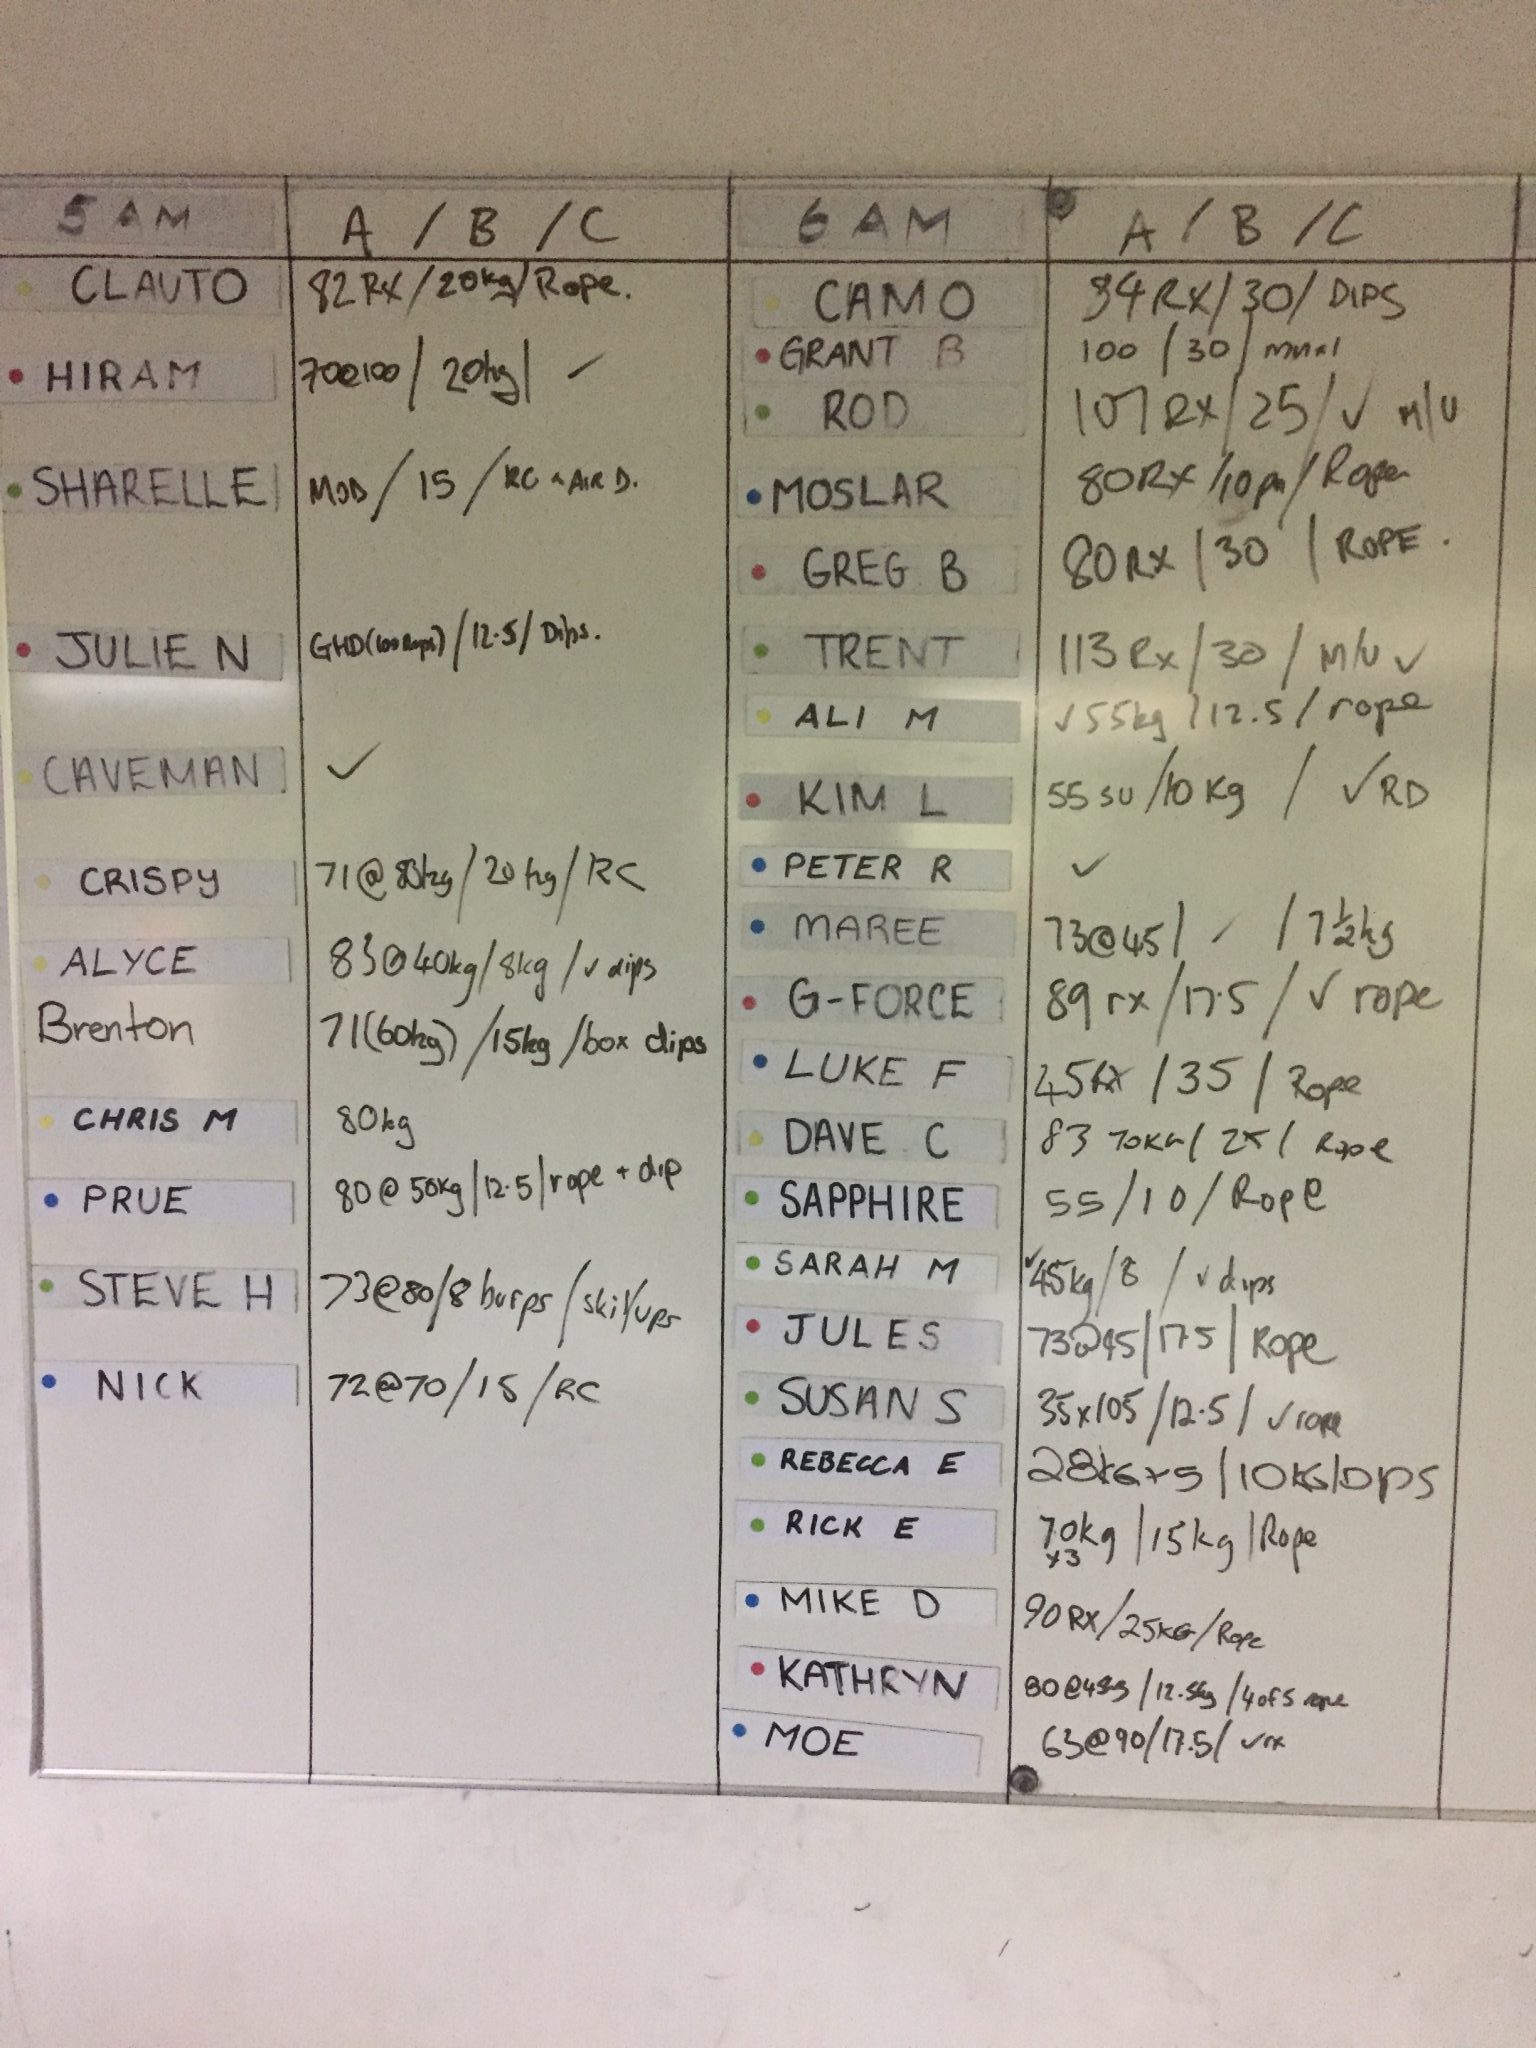 5 AM A / B / C
CLAUTO 82 RX / 20kg / Rope.
HIRAM 70@100 / 20kg / ✓
SHARELLE MOD / 15 / RC AIR D.
JULIE N GHD (100 Reps) / 12.5 / Dips.
CAVEMAN ✓
CRISPY 71 @ 83kg / 20kg / RC
ALYCE 83@40kg / 8kg / ✓ dips
Brenton 71(60kg) / 15kg / box dips
CHRIS M 80kg
PRUE 80 @ 50kg | 12.5 | rope + dip
STEVE H 73@80 / 8 burps /
NICK 72@70 / 15 / RC
6 AM A / B / C
CAMO 84 RX / 30 / DIPS
GRANT B 100 / 30 /
ROD 107 RX / 25 / ✓ M/U
MOSLAR 80RX / / Rope
GREG B 80 RX / 30 / ROPE.
TRENT 113 Rx / 30 / M/U ✓
ALI M ✓ 55kg / 12.5 / rope
KIM L 55 SU / 10 Kg / ✓ RD
PETER R ✓
MAREE 73@45 / ✓ / 7 1/2 kg
G-FORCE 89 rx / 17.5 / ✓ rope
LUKE F 45 RX / 35 / Rope
DAVE C 83 70KG / 25 / Rope
SAPPHIRE 55 / 10 / Rope
SARAH M ✓ 45kg / 8 / ✓ dips
JULES 73@45 / 17.5 / Rope
SUSAN S 35x105 / 12.5 / ✓ rope
REBECCA E 28KG x 5 | 10KG | DIPS
RICK E 70kg x3 | 15kg | Rope
MIKE D 90 RX / 25KG / Rope
KATHRYN 80@45kg / 12.5kg / 4 of 5 rope
MOE 63@90 / 17.5 / ✓ rx